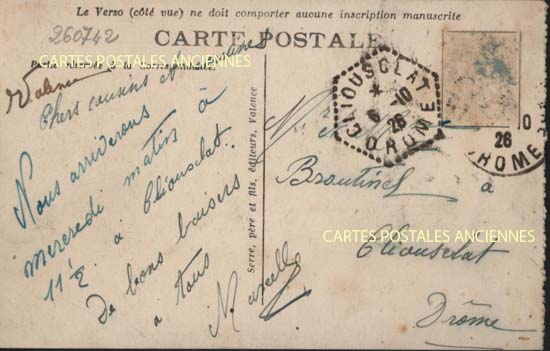 Le Verso (côté vue) ne doit comporter aucune inscription manuscrite
360742
CARTE POSTALE
Valence
Chers cousins et cousines
Nous arriverons
mercredi matin à
11 h à Cliousclat.
De bons baisers
à tous
Marcelle
Serre, père et fils, éditeurs, Valence
CLIOUSCLAT
* 6-10
26
DROME
Broutinel
à
Cliousclat
Drôme
0
26
ROME
CARTES POSTALES ANCIENNES
CARTES POSTALES ANCIENNES